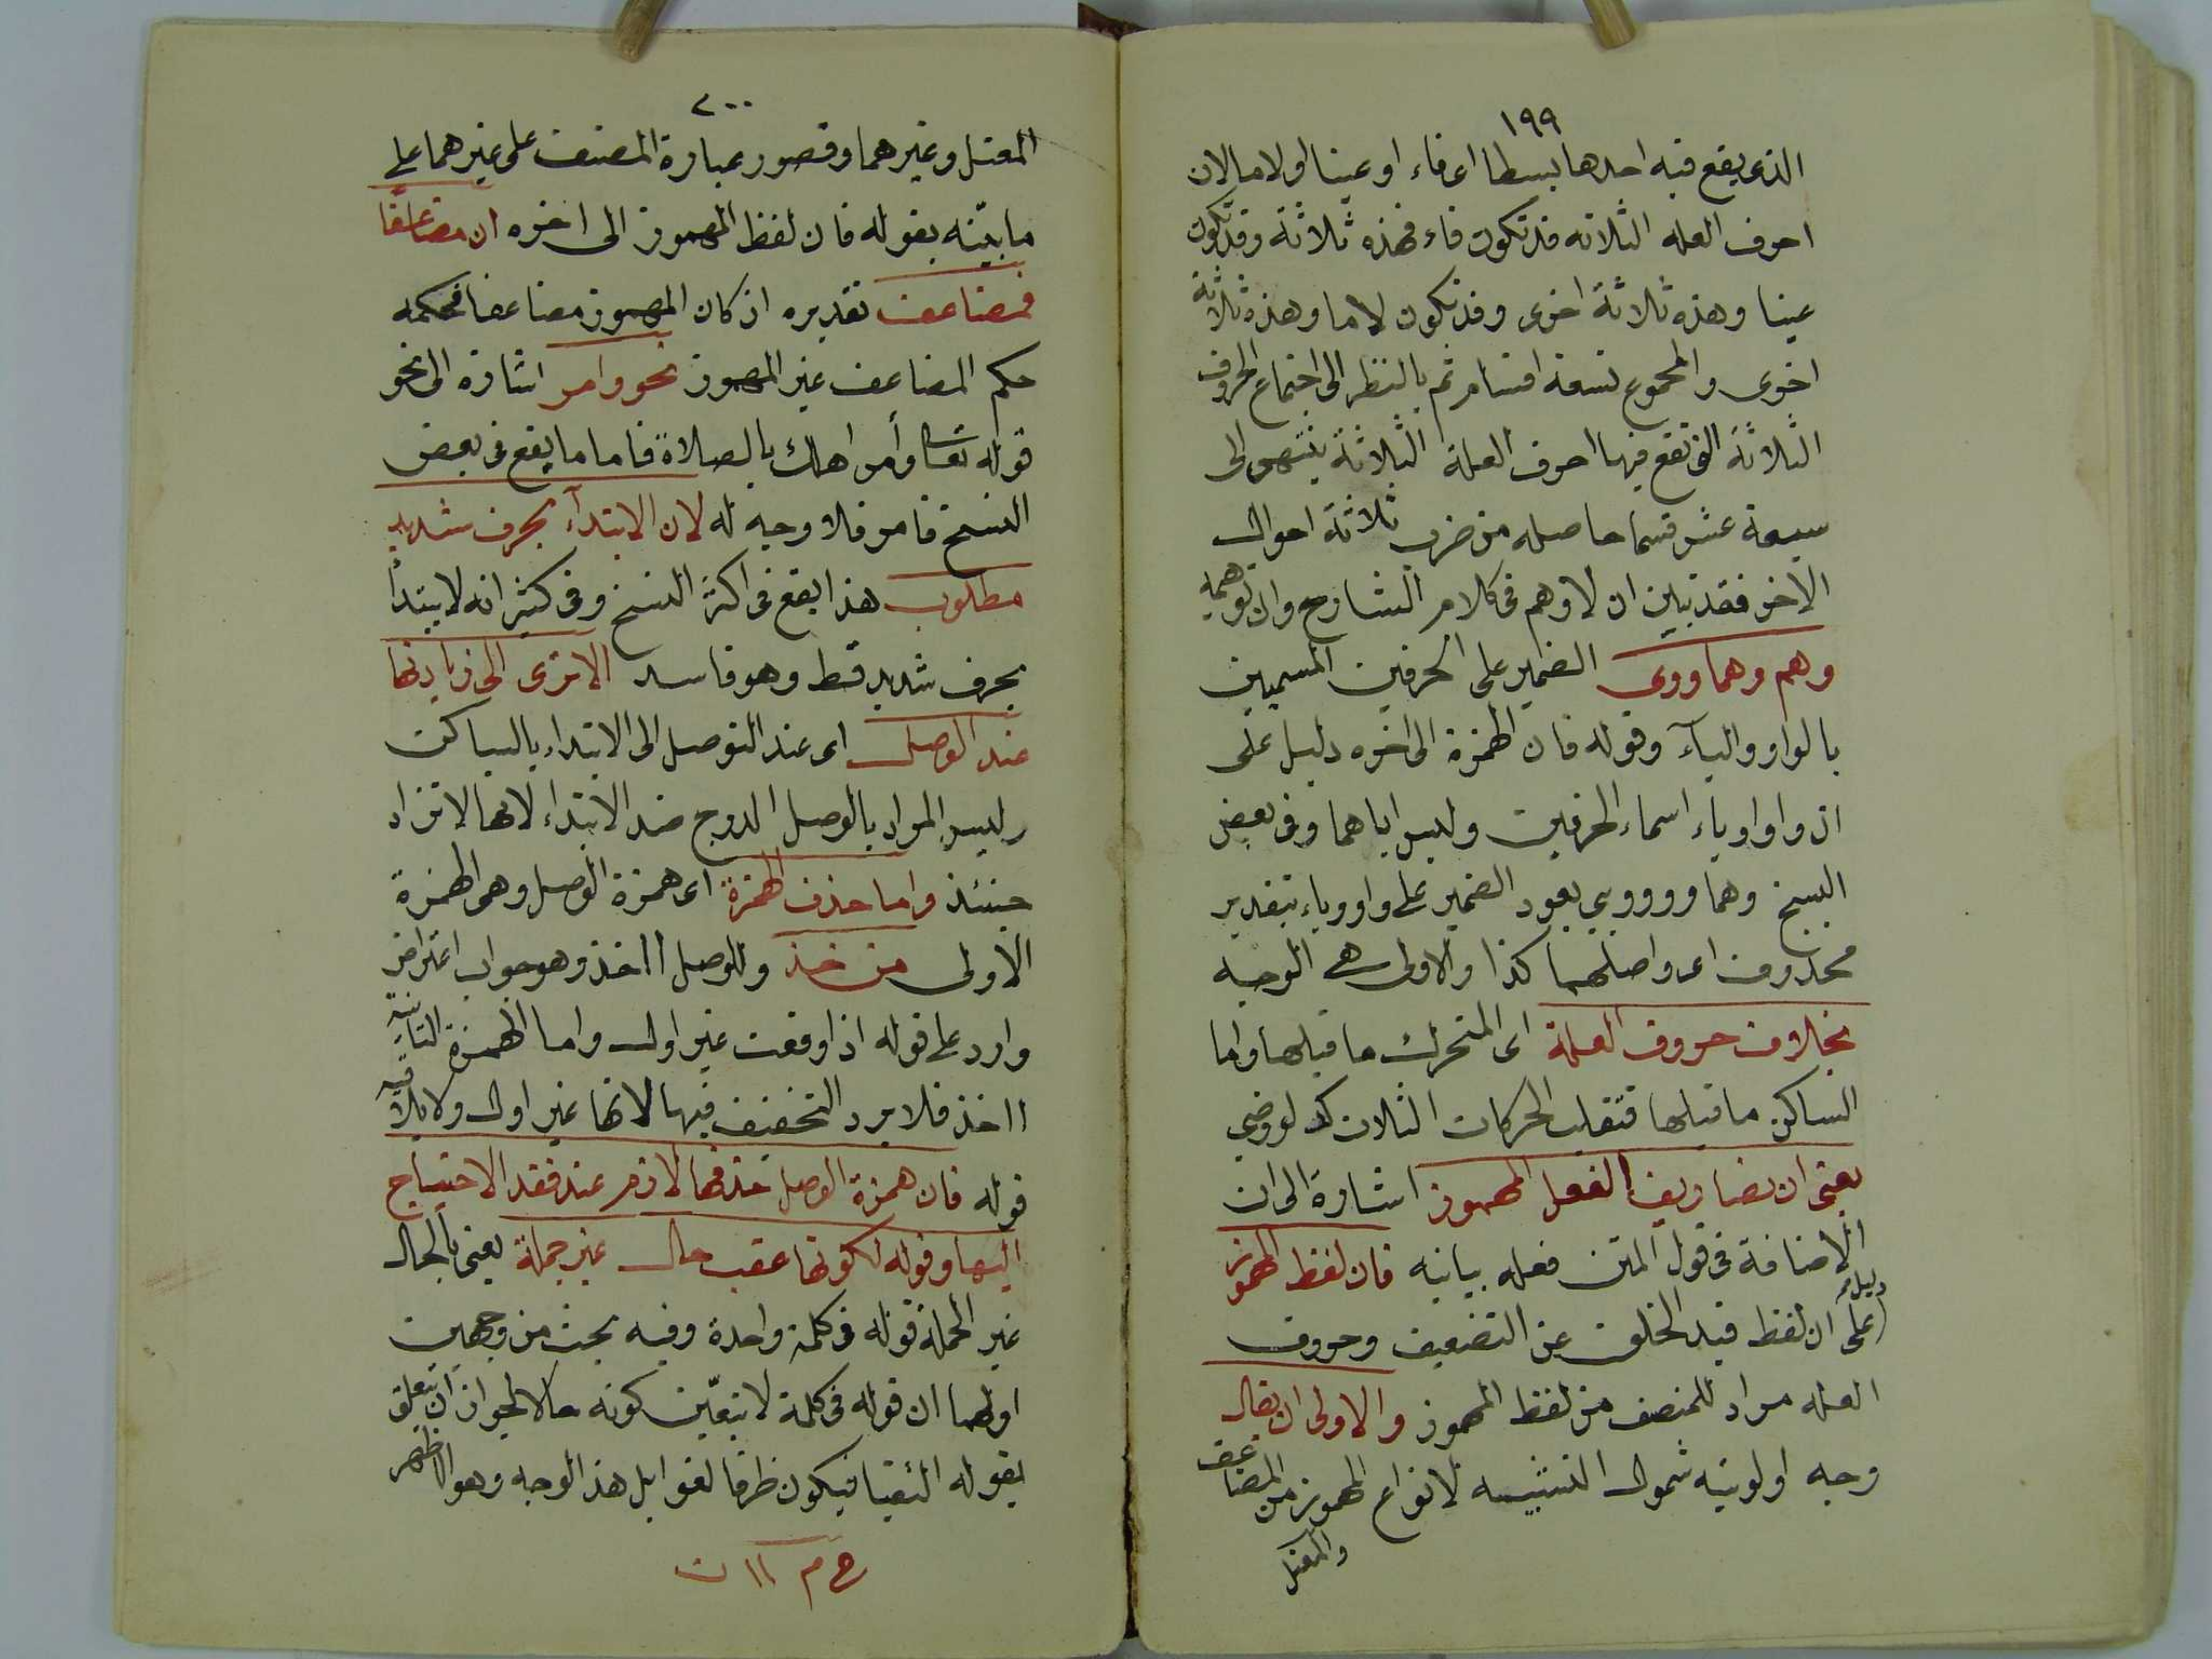 ١٩٩
الذى يقع فيه احدها بسطا اى فاء او عينا او لاما لان
احرف العله الثلاثه قد تكون فاء فهذه ثلاثة وقد تكون
عينا وهذه ثلاثة اخرى وقد تكون لاما وهذه ثلاثة
اخرى والمجموع تسعة اقسام ثم بالنظر الى اجتماع الحروف
الثلاثة التى تقع فيها احرف العلة الثلاثة ينتهى الى
سبعة عشر قسما حاصله من ضرب ثلاثة احوال
الاخر فقد تبين ان لا وهم فى كلام الشارح وان توهمه
وهم وهما ووى الضمير على الحرفين المسميين
بالواو والياء وقوله فان الهمزة الى اخره دليل على
ان واو وياء اسماء الحرفين وليس اياهما وفى بعض
النسخ وهما وووويى يعود الضمير على واو وياء بتقدير
محذوف اى واصلهما كذا والاولى هى الوجه
بخلاف حروف العلة اى المتحرك ما قبلها واما
الساكن ما قبلها فتقلب الحركات الثلاث كد لو وضى
يعنى ان تصاريف الفعل المهموز اشارة الى ان
الاضافة فى قول المتن فعله بيانيه فان لفظ المهموز
دليل
على ان لفظ قيد الخلو عن التضعيف وحروف
العله مراد للمنصف من لفظ المهموز والاولى ان يقال
وجه اولويته شمول التشبيه لانواع المهموز من المضاعف
والمعتل
٢٠٠
المعتل وغيرهما وقصور عبارة المصنف على غيرهما على
ما بيّنه بقوله فان لفظ المهموز الى اخره ان مضاعفًا
فمضاعف تقديره ان كان المهموز مضاعفا فحكمه
حكم المضاعف غير المهموز نحو وامر اشارة الى نحو
قوله تعالى وأمر اهلك بالصلاة فاما ما يقع فى بعض
النسخ فامر فلا وجه له لان الابتدآء بحرف شديد
مطلوب هذا يقع فى اكثر النسخ وفى كثير انه لا يبتدأ
بحرف شديد قط وهو فاسد الا ترى الى زيادتها
عند الوصل اى عند التوصل الى الابتداء بالساكن
وليس المراد بالوصل الدرج ضد الابتداء لانها لا تزاد
حينئذ واما حذف الهمزة اى همزة الوصل وهى الهمزة
الاولى من خذ وللوصل ااخذ وهو جواب اعتراض
وارد على قوله اذا وقعت غير اول واما الهمزة الثانية
ااخذ فلا يرد التخفيف فيها لانها غير اول ولا يلاقيه
قوله فان همزة الوصل حذفها لازم عند فقد الاحتياج
اليها وقوله لكونها عقب حال غير جملة يعنى بالحال
غير الجملة قوله فى كلمة واحدة وفيه بحث من وجهين
اولهما ان قوله فى كلمة لا يتعيّن كونه حالا لجواز ان يتعلق
بقوله التقيا فيكون ظرفا لغوا بل هذا الوجه وهو الاظهر